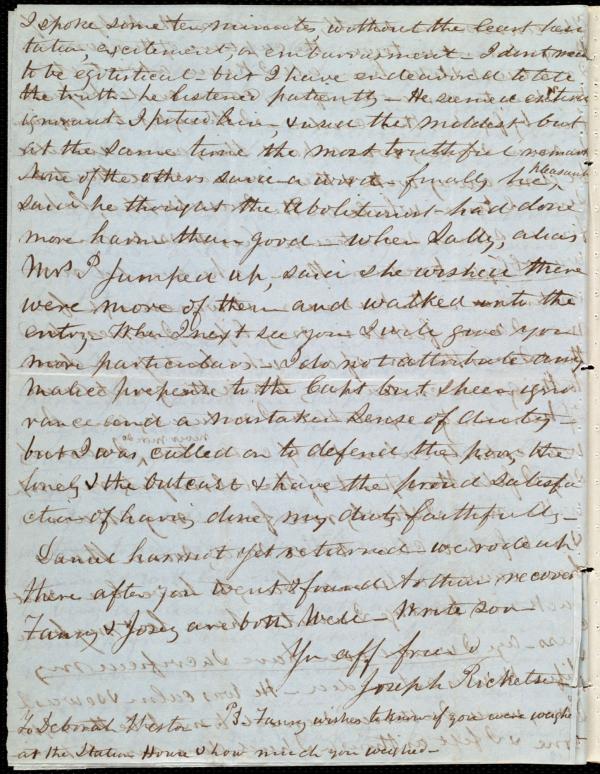 I spoke some ten minutes without the least hesi
tation, excitement, or embarrassment - I dont mean
to be egotistical - but I have endeavored to tell
the truth - he listened patiently - He seemed entirely
ignorant I pitied him, & used the mildest but
at the same time the most truthful remarks
None of the others said a word - finally he, pleasantly
said he thought the Abolitionist had done
more harm than good - when Sally, alias
Mrs P jumped up, said she wished there
were more of them and walked into the
entry. When I next see you I will give you
more particulars - I do not attribute any
malice prepense to the Capt but sheer igno
rance and a mistaken sense of duty -
but I was called on to defend the poor, the
lonely & the outcast & have the proud satisfa
ction of having done my duty faithfully -
Daniel has not yet returned - we rode up
there after you went & found Arthur recover
Fanny & Josey are both Well - Write soon
Yr aff friend
Joseph Ricketson
To Deborah Weston P.S. Fanny wishes to know if you were weighed
at the Station House & how much you weighed -